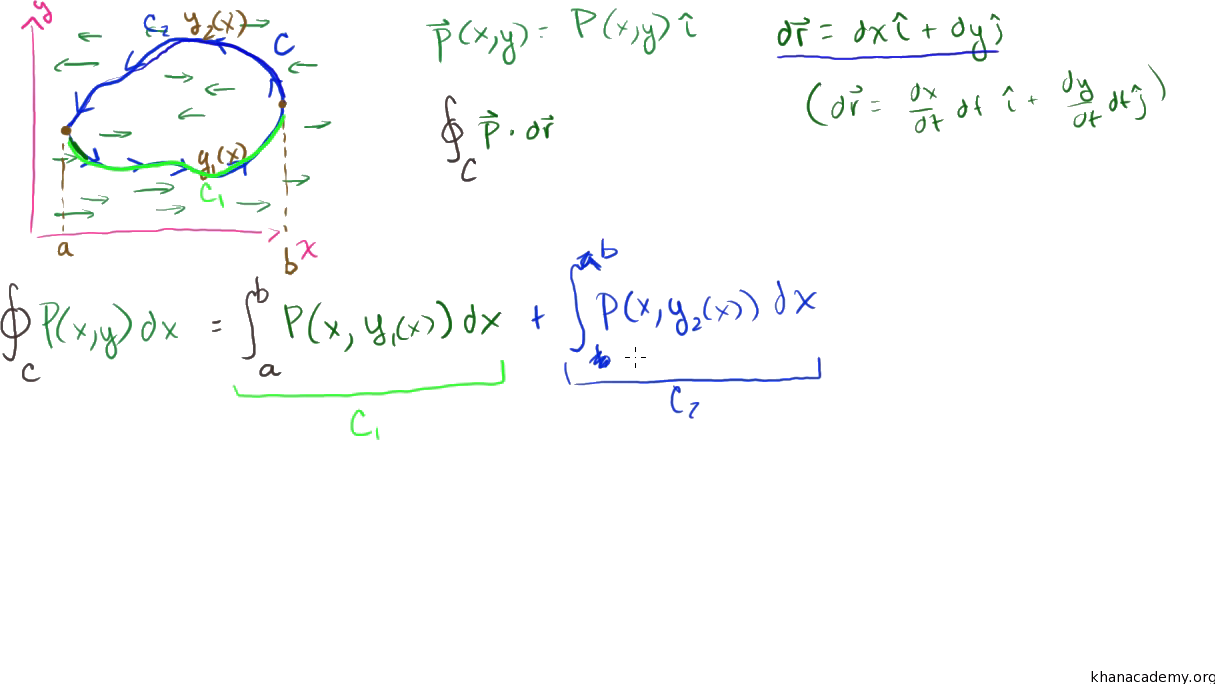 y
C₂ y₂(x) C
y₁(x)
C₁
a b x
P⃗(x,y) = P(x,y) î
∮_C P⃗ · dr⃗
dr⃗ = dx î + dy ĵ
(dr⃗ = dx/dt dt î + dy/dt dt ĵ)
∮_C P(x,y) dx = ∫_a^b P(x, y₁(x)) dx + ∫^b P(x, y₂(x)) dx
C₁ C₂
khanacademy.org